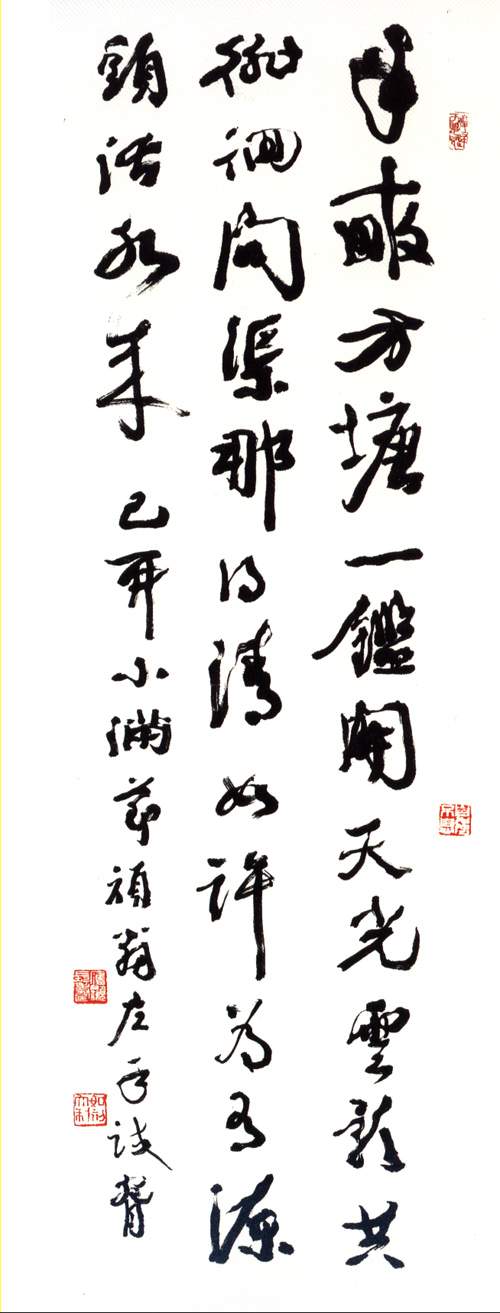 半畝方塘一鑑開天光雲影共
徘徊問渠那得清如許為有源
頭活水來 己卯小滿節頑翁左手試臂